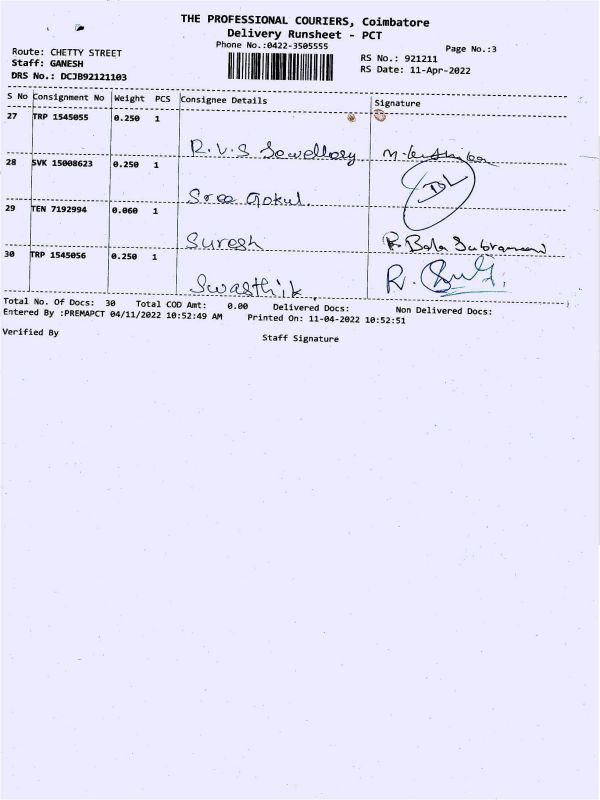 THE PROFESSIONAL COURIERS, Coimbatore
Delivery Runsheet - PCT
Phone No.:0422-3505555
Page No.:3
Route: CHETTY STREET
RS No.: 921211
Staff: GANESH
RS Date: 11-Apr-2022
DRS No.: DCJB92121103
S No Consignment No Weight PCS Consignee Details Signature
27 TRP 1545055 0.250 1
R.V.S Jewellery
28 SVK 15008623 0.250 1
Sree Gokul.
29 TEN 7192994 0.060 1
Suresh R. Bala Subramani
30 TRP 1545056 0.250 1
Swasthik R.
Total No. Of Docs: 30 Total COD Amt: 0.00 Delivered Docs: Non Delivered Docs:
Entered By :PREMAPCT 04/11/2022 10:52:49 AM Printed On: 11-04-2022 10:52:51
Verified By Staff Signature